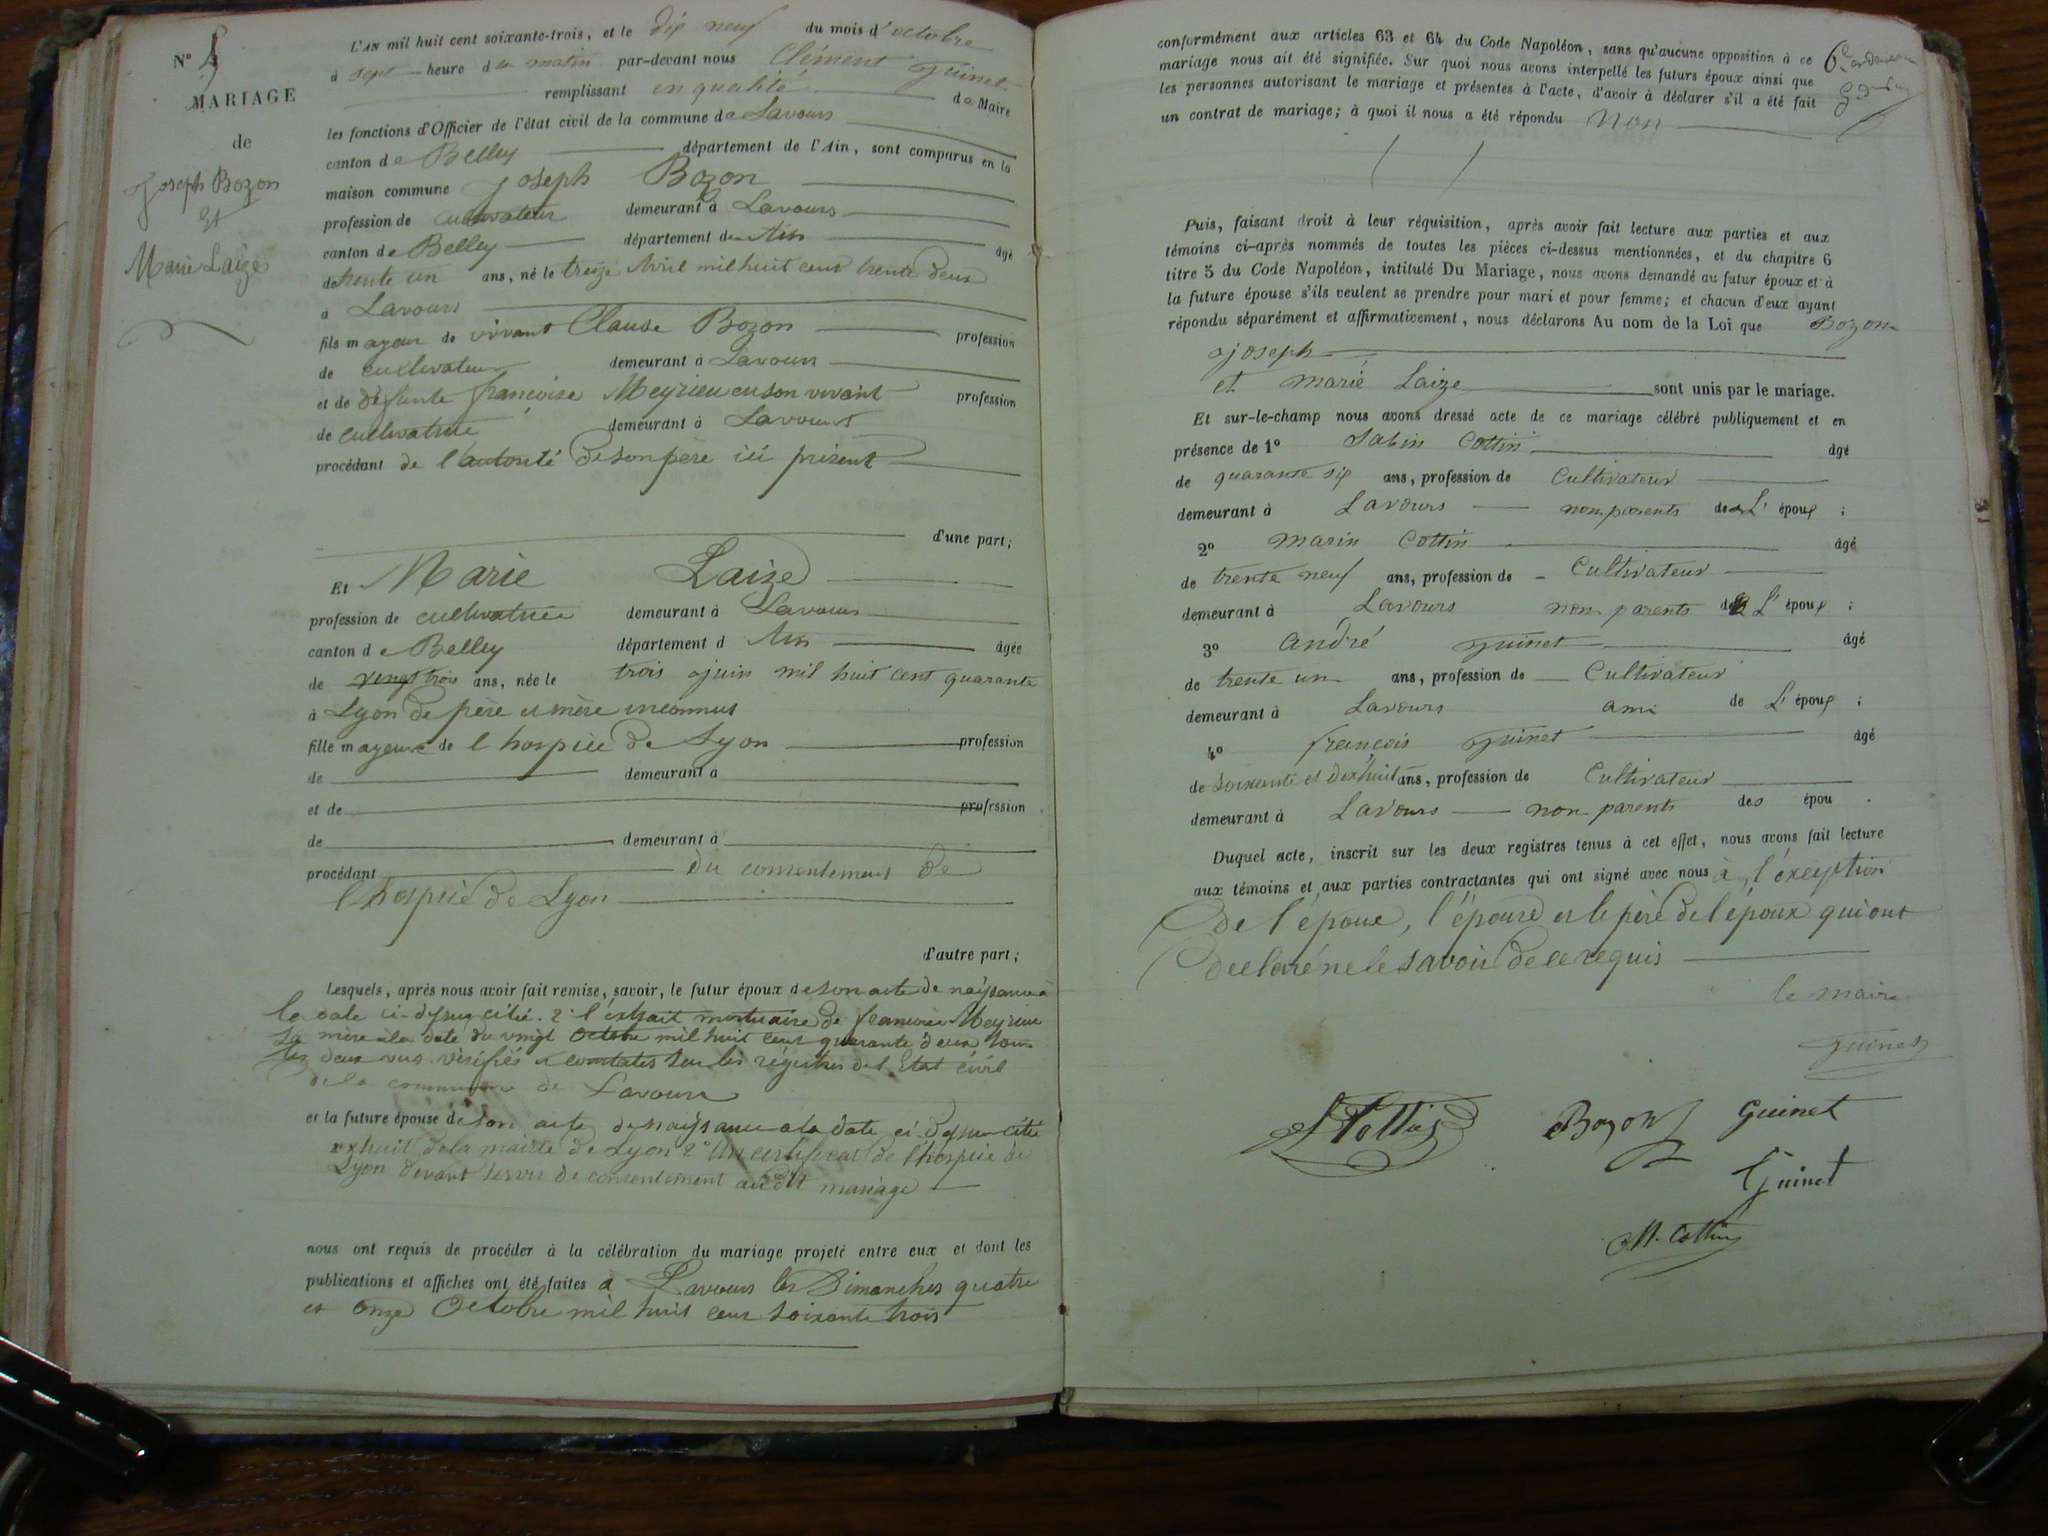 N° 5
MARIAGE
de
Joseph Bozon
et
Marie Laize
L'AN mil huit cent soixante-trois, et le dix neuf du mois d'octobre
à sept heure du matin par-devant nous Clément Guinet
remplissant en qualité de Maire
les fonctions d'Officier de l'état civil de la commune de Lavours
canton de Belley département de l'Ain, sont comparus en la
maison commune Joseph Bozon
profession de cultivateur demeurant à Lavours
canton de Belley département de Ain âgé
de trente un ans, né le treize Avril mil huit cent trente deux
à Lavours
fils mayeur de vivant Claude Bozon profession
de cultivateur demeurant à Lavours
et de défunte françoise Meyrieu en son vivant profession
de cultivatrice demeurant à Lavours
procédant de l'autorité de son père ici présent
d'une part;
Et Marie Laize
profession de cultivatrice demeurant à Lavours
canton de Belley département d Ain âgée
de vingt trois ans, née le trois juin mil huit cent quarante
à Lyon de père et mère inconnus
fille mayeure de l'hospice de Lyon profession
de demeurant à
et de profession
de demeurant à
procédant du consentement de
l'hospice de Lyon
d'autre part;
Lesquels, après nous avoir fait remise, savoir, le futur époux de son acte de naissance à
la date ci-dessus citée. 2° l'extrait mortuaire de françoise Meyrieu
sa mère à la date du vingt octobre mil huit cent quarante deux tous
les deux vus vérifiés et constatés sur les régistres de l'Etat civil
de la commune de Lavours
et la future épouse de son acte de naissance à la date ci-dessus citée
extrait de la mairie de Lyon 2° Un certificat de l'hospice de
Lyon devant servir de consentement au dit mariage
nous ont requis de procéder à la célébration du mariage projeté entre eux et dont les
publications et affiches ont été faites à Lavours les Dimanches quatre
et onze Octobre mil huit cent soixante trois
conformément aux articles 63 et 64 du Code Napoléon, sans qu'aucune opposition à ce
mariage nous ait été signifiée. Sur quoi nous avons interpellé les futurs époux ainsi que
les personnes autorisant le mariage et présentes à l'acte, d'avoir à déclarer s'il a été fait
un contrat de mariage; à quoi il nous a été répondu Non
6
Puis, faisant droit à leur réquisition, après avoir fait lecture aux parties et aux
témoins ci-après nommés de toutes les pièces ci-dessus mentionnées, et du chapitre 6
titre 5 du Code Napoléon, intitulé Du Mariage, nous avons demandé au futur époux et à
la future épouse s'ils veulent se prendre pour mari et pour femme; et chacun d'eux ayant
répondu séparément et affirmativement, nous déclarons Au nom de la Loi que Bozon
joseph
et marie Laize sont unis par le mariage.
Et sur-le-champ nous avons dressé acte de ce mariage célébré publiquement et en
présence de 1° Sabin Cottin âgé
de quarante six ans, profession de Cultivateur
demeurant à Lavours non parents de L' époux ;
2° marin Cottin âgé
de trente neuf ans, profession de Cultivateur
demeurant à Lavours non parents de L' époux ;
3° andré guinet âgé
de trente un ans, profession de Cultivateur
demeurant à Lavours ami de L' époux ;
4° françois guinet âgé
de soixante et dix huit ans, profession de Cultivateur
demeurant à Lavours non parents des épou .
Duquel acte, inscrit sur les deux registres tenus à cet effet, nous avons fait lecture
aux témoins et aux parties contractantes qui ont signé avec nous à l'exeption
De l'épouse, l'épouse et le père de l'époux qui ont
declaré ne le savoir de ce requis
le maire
guinet
S Cottin Bozon Guinet
Guinet
M. Cottin
31